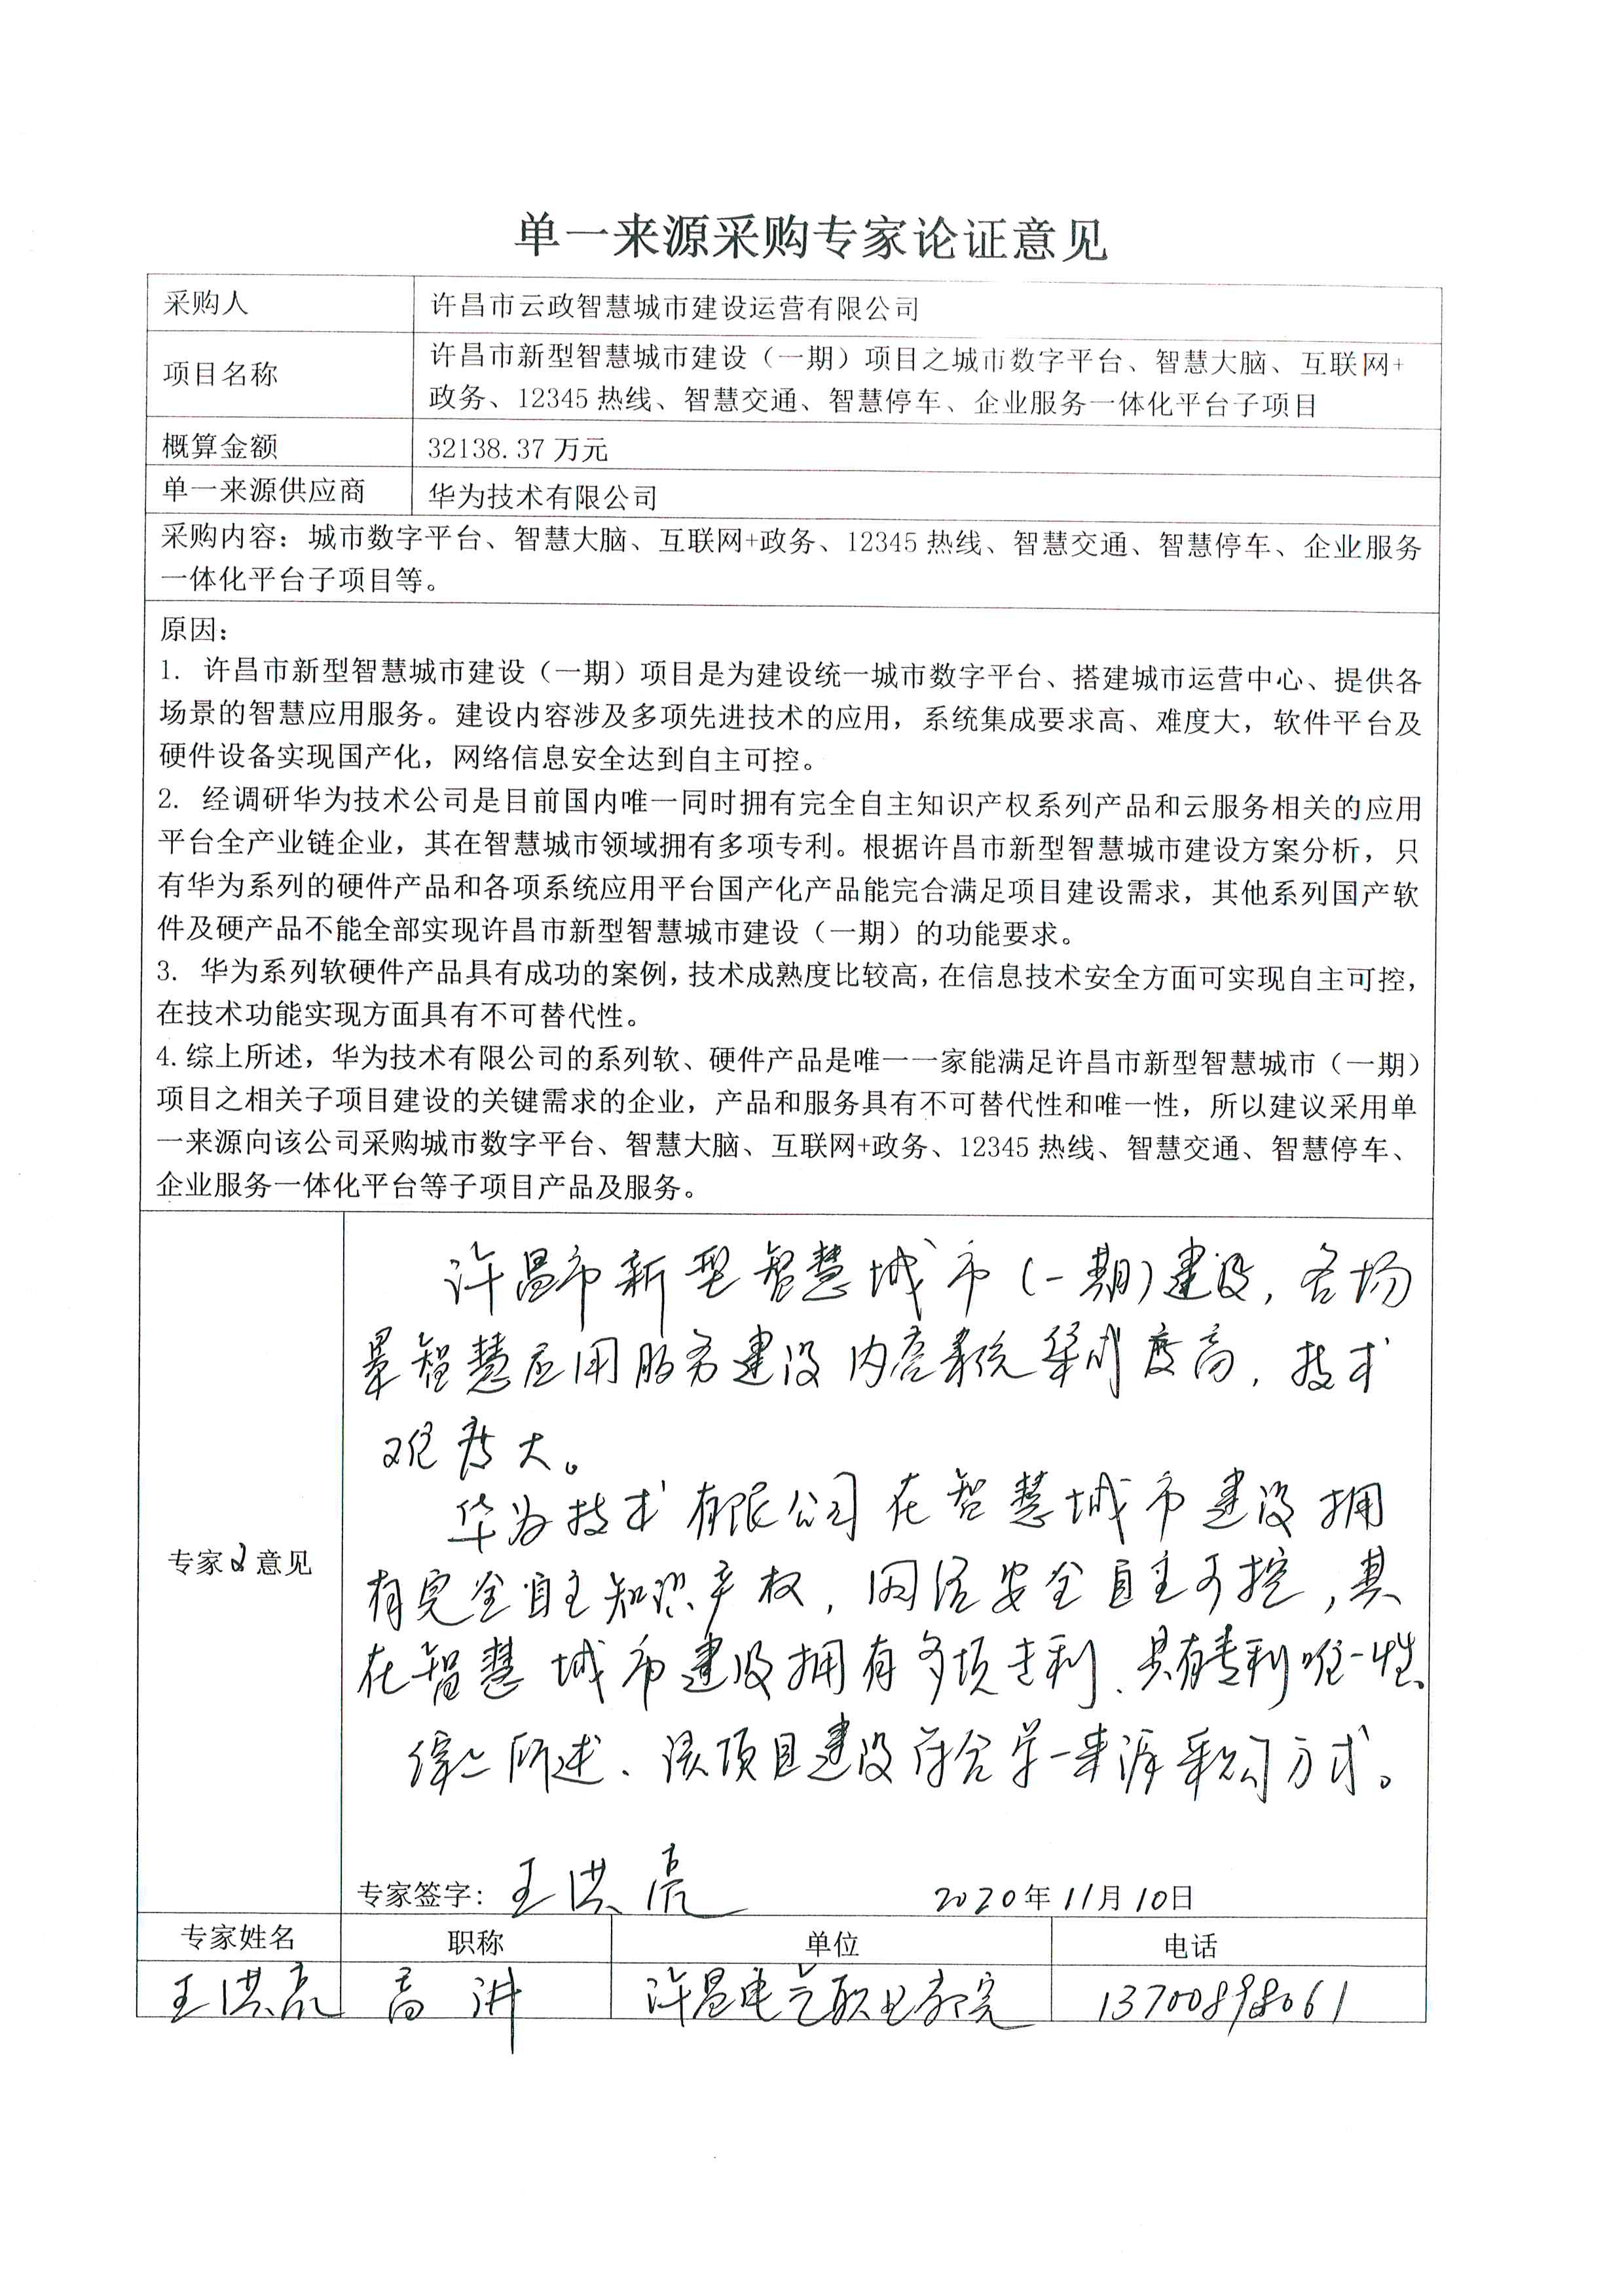 单一来源采购专家论证意见
采购人 许昌市云政智慧城市建设运营有限公司
项目名称 许昌市新型智慧城市建设（一期）项目之城市数字平台、智慧大脑、互联网+
政务、12345 热线、智慧交通、智慧停车、企业服务一体化平台子项目
概算金额 32138.37 万元
单一来源供应商 华为技术有限公司
采购内容：城市数字平台、智慧大脑、互联网+政务、12345 热线、智慧交通、智慧停车、企业服务
一体化平台子项目等。
原因：
1. 许昌市新型智慧城市建设（一期）项目是为建设统一城市数字平台、搭建城市运营中心、提供各
场景的智慧应用服务。建设内容涉及多项先进技术的应用，系统集成要求高、难度大，软件平台及
硬件设备实现国产化，网络信息安全达到自主可控。
2. 经调研华为技术公司是目前国内唯一同时拥有完全自主知识产权系列产品和云服务相关的应用
平台全产业链企业，其在智慧城市领域拥有多项专利。根据许昌市新型智慧城市建设方案分析，只
有华为系列的硬件产品和各项系统应用平台国产化产品能完合满足项目建设需求，其他系列国产软
件及硬产品不能全部实现许昌市新型智慧城市建设（一期）的功能要求。
3. 华为系列软硬件产品具有成功的案例，技术成熟度比较高，在信息技术安全方面可实现自主可控，
在技术功能实现方面具有不可替代性。
4.综上所述，华为技术有限公司的系列软、硬件产品是唯一一家能满足许昌市新型智慧城市（一期）
项目之相关子项目建设的关键需求的企业，产品和服务具有不可替代性和唯一性，所以建议采用单
一来源向该公司采购城市数字平台、智慧大脑、互联网+政务、12345 热线、智慧交通、智慧停车、
企业服务一体化平台等子项目产品及服务。
许昌市新型智慧城市(一期)建设，各场
景智慧应用服务建设内容系统集成度高，技术
难度大。
华为技术有限公司在智慧城市建设拥
专家2意见
有完全自主知识产权，网络安全自主可控，其
在智慧城市建设拥有多项专利、具有专利唯一性。
综上所述、该项目建设符合单一来源采购方式。
专家签字：王洪亮 2020年11月10日
专家姓名 职称 单位 电话
王洪亮 高讲 许昌电气职业学院 13700898061